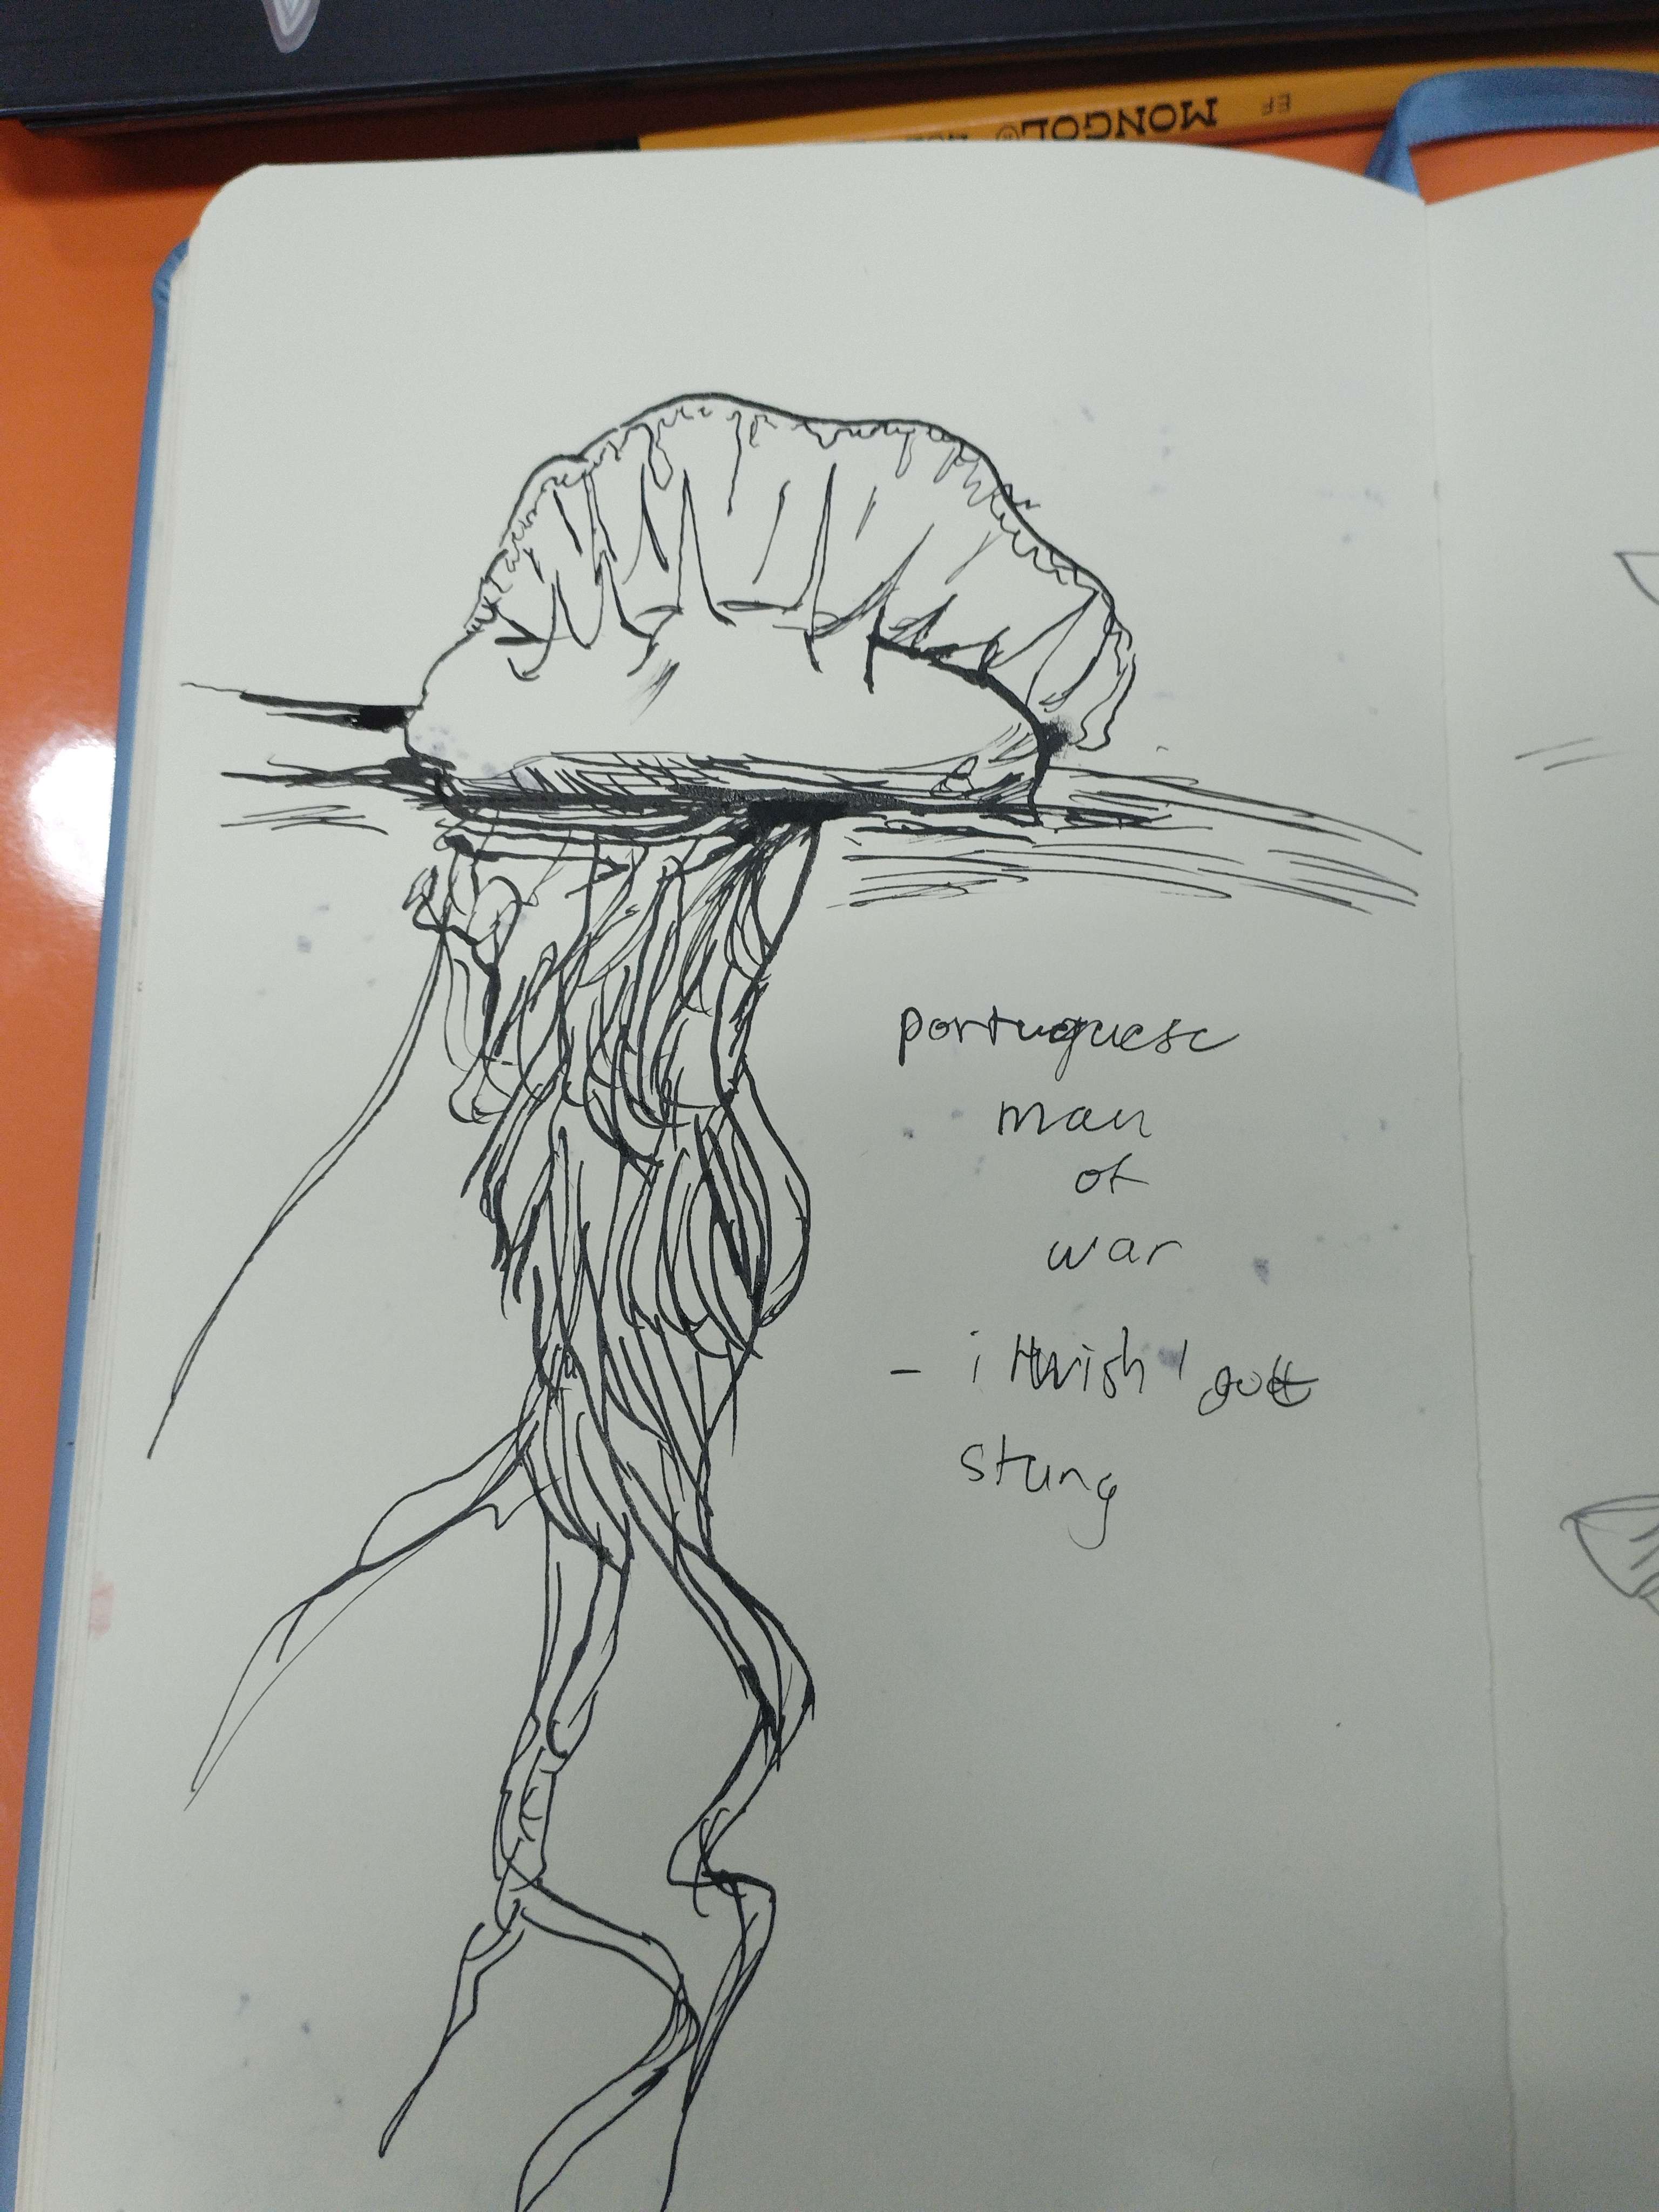 MONGOL® EF
portuguese
man
of
war
- i wish i got
stung